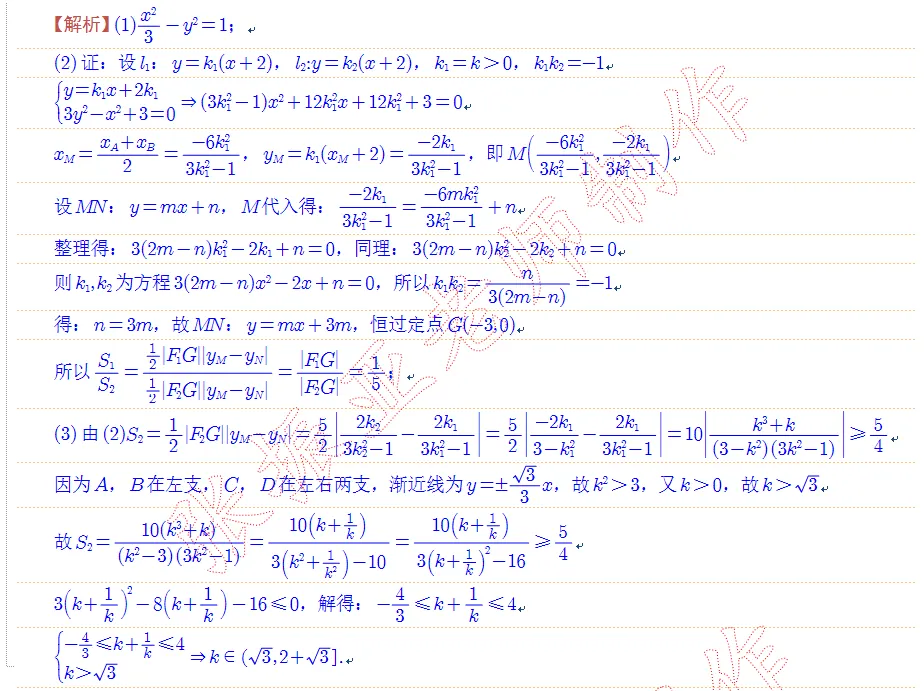 【解析】(1) x²/3 − y² = 1;
(2) 证:设 l₁: y=k₁(x+2), l₂:y=k₂(x+2), k₁=k>0, k₁k₂=−1
{y=k₁x+2k₁, 3y²−x²+3=0} ⇒(3k₁²−1)x²+12k₁²x+12k₁²+3=0
x_M=(x_A+x_B)/2=(−6k₁²)/(3k₁²−1), y_M=k₁(x_M+2)=(−2k₁)/(3k₁²−1), 即 M((−6k₁²)/(3k₁²−1), (−2k₁)/(3k₁²−1))
设 MN: y=mx+n, M 代入得: (−2k₁)/(3k₁²−1)=(−6mk₁²)/(3k₁²−1)+n
整理得: 3(2m−n)k₁²−2k₁+n=0, 同理: 3(2m−n)k₂²−2k₂+n=0
则 k₁,k₂ 为方程 3(2m−n)x²−2x+n=0, 所以 k₁k₂=n/(3(2m−n))=−1
得: n=3m, 故 MN: y=mx+3m, 恒过定点 G(−3,0)
所以 S₁/S₂=(½|F₁G||y_M−y_N|)/(½|F₂G||y_M−y_N|)=|F₁G|/|F₂G|=1/5;
(3) 由 (2)S₂=½|F₂G||y_M−y_N|=5/2|2k₂/(3k₂²−1)−2k₁/(3k₁²−1)|=5/2|−2k₁/(3−k₁²)−2k₁/(3k₁²−1)|=10|(k³+k)/((3−k²)(3k²−1))|⩾5/4
因为 A, B 在左支, C, D 在左右两支, 渐近线为 y=±(√3/3)x, 故 k²>3, 又 k>0, 故 k>√3
故 S₂=10(k³+k)/((k²−3)(3k²−1))=10(k+1/k)/(3(k²+1/k²)−10)=10(k+1/k)/(3(k+1/k)²−16)⩾5/4
3(k+1/k)²−8(k+1/k)−16⩽0, 解得: −4/3⩽k+1/k⩽4
{−4/3⩽k+1/k⩽4, k>√3} ⇒k∈(√3,2+√3].
张振亚老师制作
作